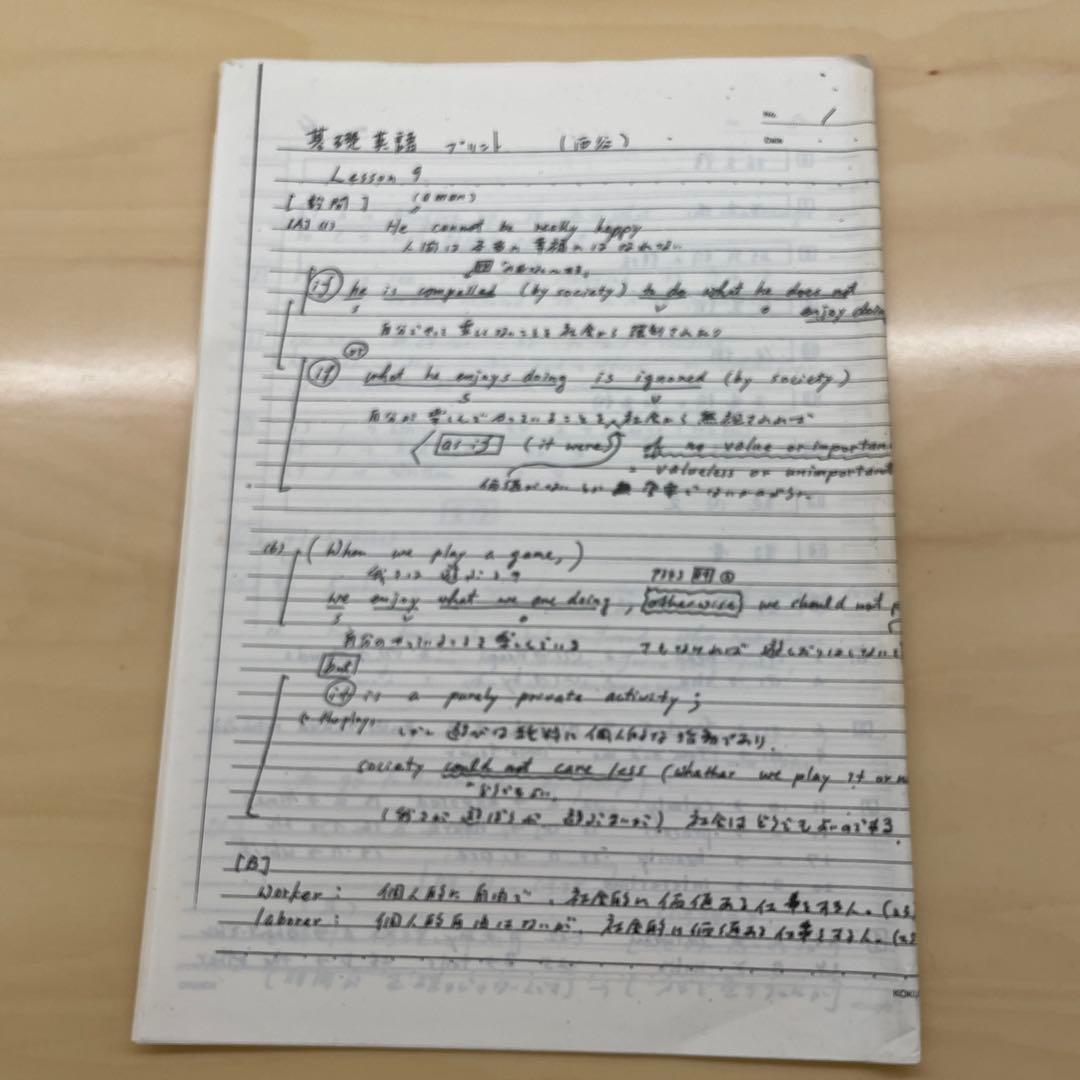 No. 1
Date
基礎英語 プリント
Lesson 9
[設問] (a man)
[A] (1) He cannot be really happy
人間は 本当に 幸福には なれない
(if) he is compelled (by society) to do what he does not enjoy doin
s v o
自分がやって 楽しくないことを 社会から 強制されたり
or
(if) what he enjoys doing is ignored (by society)
s v
自分が 楽しんで やっていることを 社会から 無視されれば
as if (it were) of no value or importan
= valueless or unimportant
価値がないとか
(b) (When we play a game,)
我々は 遊ぶとき
we enjoy what we are doing, otherwise we should not p
s v o
自分のやっていることを 楽しんでいる そうでなければ
but
it is a purely private activity;
(= the play)
しかし 遊びは純粋に個人的な活動であり、
society could not care less (whether we play it or n
どうでもよい
(我々が 遊ぼうが 遊ぶまいが) 社会はどうでもよいのである
[B]
worker: 個人的に自由で、社会的に価値ある仕事をする人。
laborer: 個人的自由はないが、社会的に価値ある仕事をする人。
KOKU